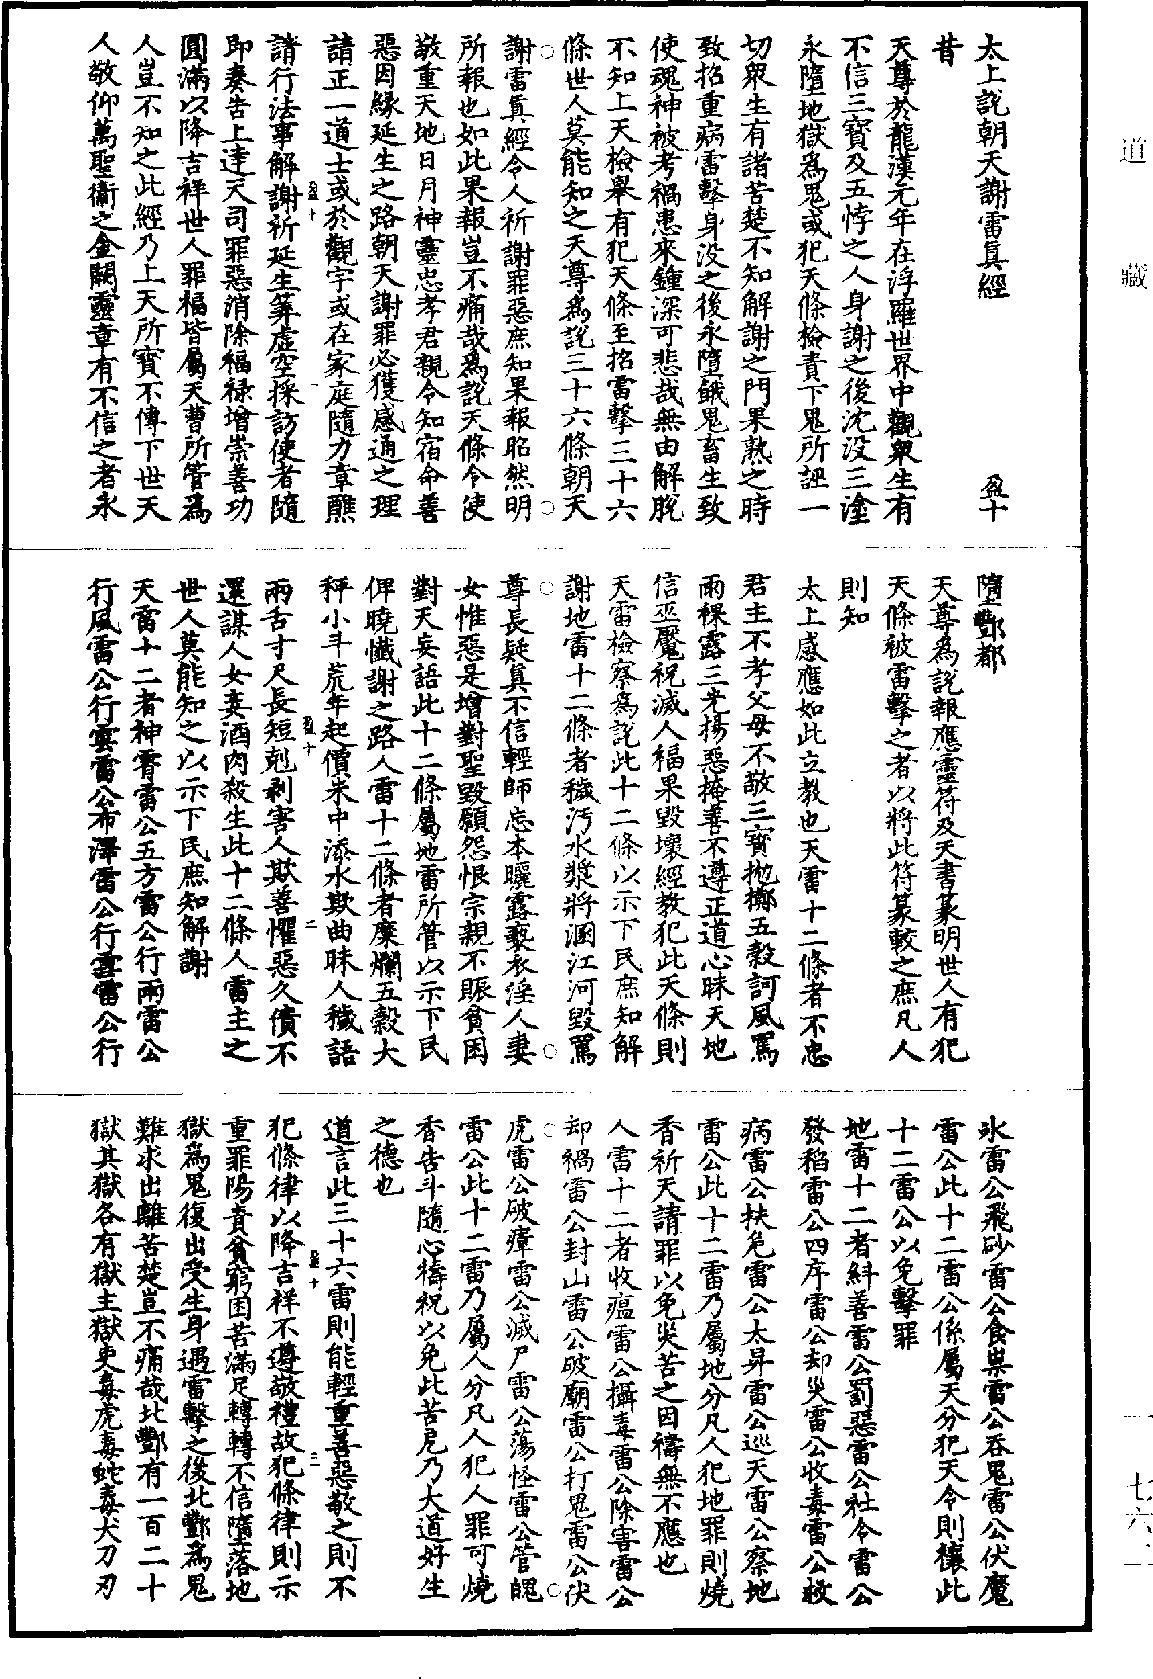 太上說朝天謝雷真經
盈十
昔
天尊於龍漢元年在浮羅世界中觀眾生有
不信三寶及五悖之人身謝之後沈沒三塗
永墮地獄為鬼或犯天條檢責下鬼所誣一
切眾生有諸苦楚不知解謝之門果熟之時
致招重病雷擊身沒之後永墮餓鬼畜生致
使魂神被考禍患來鍾深可悲哉無由解脫
不知上天檢舉有犯天條至招雷擊三十六
條世人莫能知之天尊為說三十六條朝天
謝雷真經令人祈謝罪惡庶知果報昭然明
所報也如此果報豈不痛哉為說天條令使
敬重天地日月神靈忠孝君親令知宿命善
惡因緣延生之路朝天謝罪必獲感通之理
請正一道士或於觀宇或在家庭隨力章醮
盈十
一
請行法事解謝祈延生筭虛空採訪使者隨
即奏告上達天司罪惡消除福祿增崇善功
圓滿以降吉祥世人罪福皆屬天曹所管為
人豈不知之此經乃上天所寶不傳下世天
人敬仰萬聖衞之金闕靈章有不信之者永
墮酆都
天尊為說報應靈符及天書篆明世人有犯
天條被雷擊之者以將此符篆較之庶凡人
則知
太上感應如此立教也天雷十二條者不忠
君主不孝父母不敬三寶拋擲五穀訶風罵
雨裸露三光揚惡掩善不遵正道心昧天地
信巫魘祝滅人福果毀壞經教犯此天條則
天雷檢察為說此十二條以示下民庶知解
謝地雷十二條者穢汚水漿將溷江河毀罵
尊長疑真不信輕師忘本曬露褻衣淫人妻
女惟惡是增對聖毀願怨恨宗親不賑貧困
對天妄語此十二條屬地雷所管以示下民
俾曉懺謝之路人雷十二條者糜爛五穀大
秤小斗荒年起價米中添水欺曲昧人穢語
盈十
二
兩舌寸尺長短剋剥害人欺善懼惡久債不
還謀人女妾酒肉殺生此十二條人雷主之
世人莫能知之以示下民庶知解謝
天雷十二者神霄雷公五方雷公行雨雷公
行風雷公行雲雷公布澤雷公行雪雷公行
冰雷公飛砂雷公食祟雷公吞鬼雷公伏魔
雷公此十二雷公係屬天分犯天令則禳此
十二雷公以免擊罪
地雷十二者糾善雷公罰惡雷公社令雷公
發稻雷公四序雷公却災雷公收毒雷公救
病雷公扶危雷公太昇雷公巡天雷公察地
雷公此十二雷乃屬地分凡人犯地罪則燒
香祈天請罪以免災苦之因禱無不應也
人雷十二者收瘟雷公攝毒雷公除害雷公
却禍雷公封山雷公破廟雷公打鬼雷公伏
虎雷公破瘴雷公滅尸雷公蕩怪雷公管魄
雷公此十二雷乃屬人分凡人犯人罪可燒
香告斗隨心禱祝以免此苦厄乃大道好生
之德也
道言此三十六雷則能輕重善惡敬之則不
盈十
三
犯條律以降吉祥不遵敬禮故犯條律則示
重罪陽責貧窮困苦滿足轉轉不信墮落地
獄為鬼復出受生身遇雷擊之後北酆為鬼
難求出離苦楚豈不痛哉北酆有一百二十
獄其獄各有獄主獄吏毒虎毒蛇毒犬刀刃
道藏